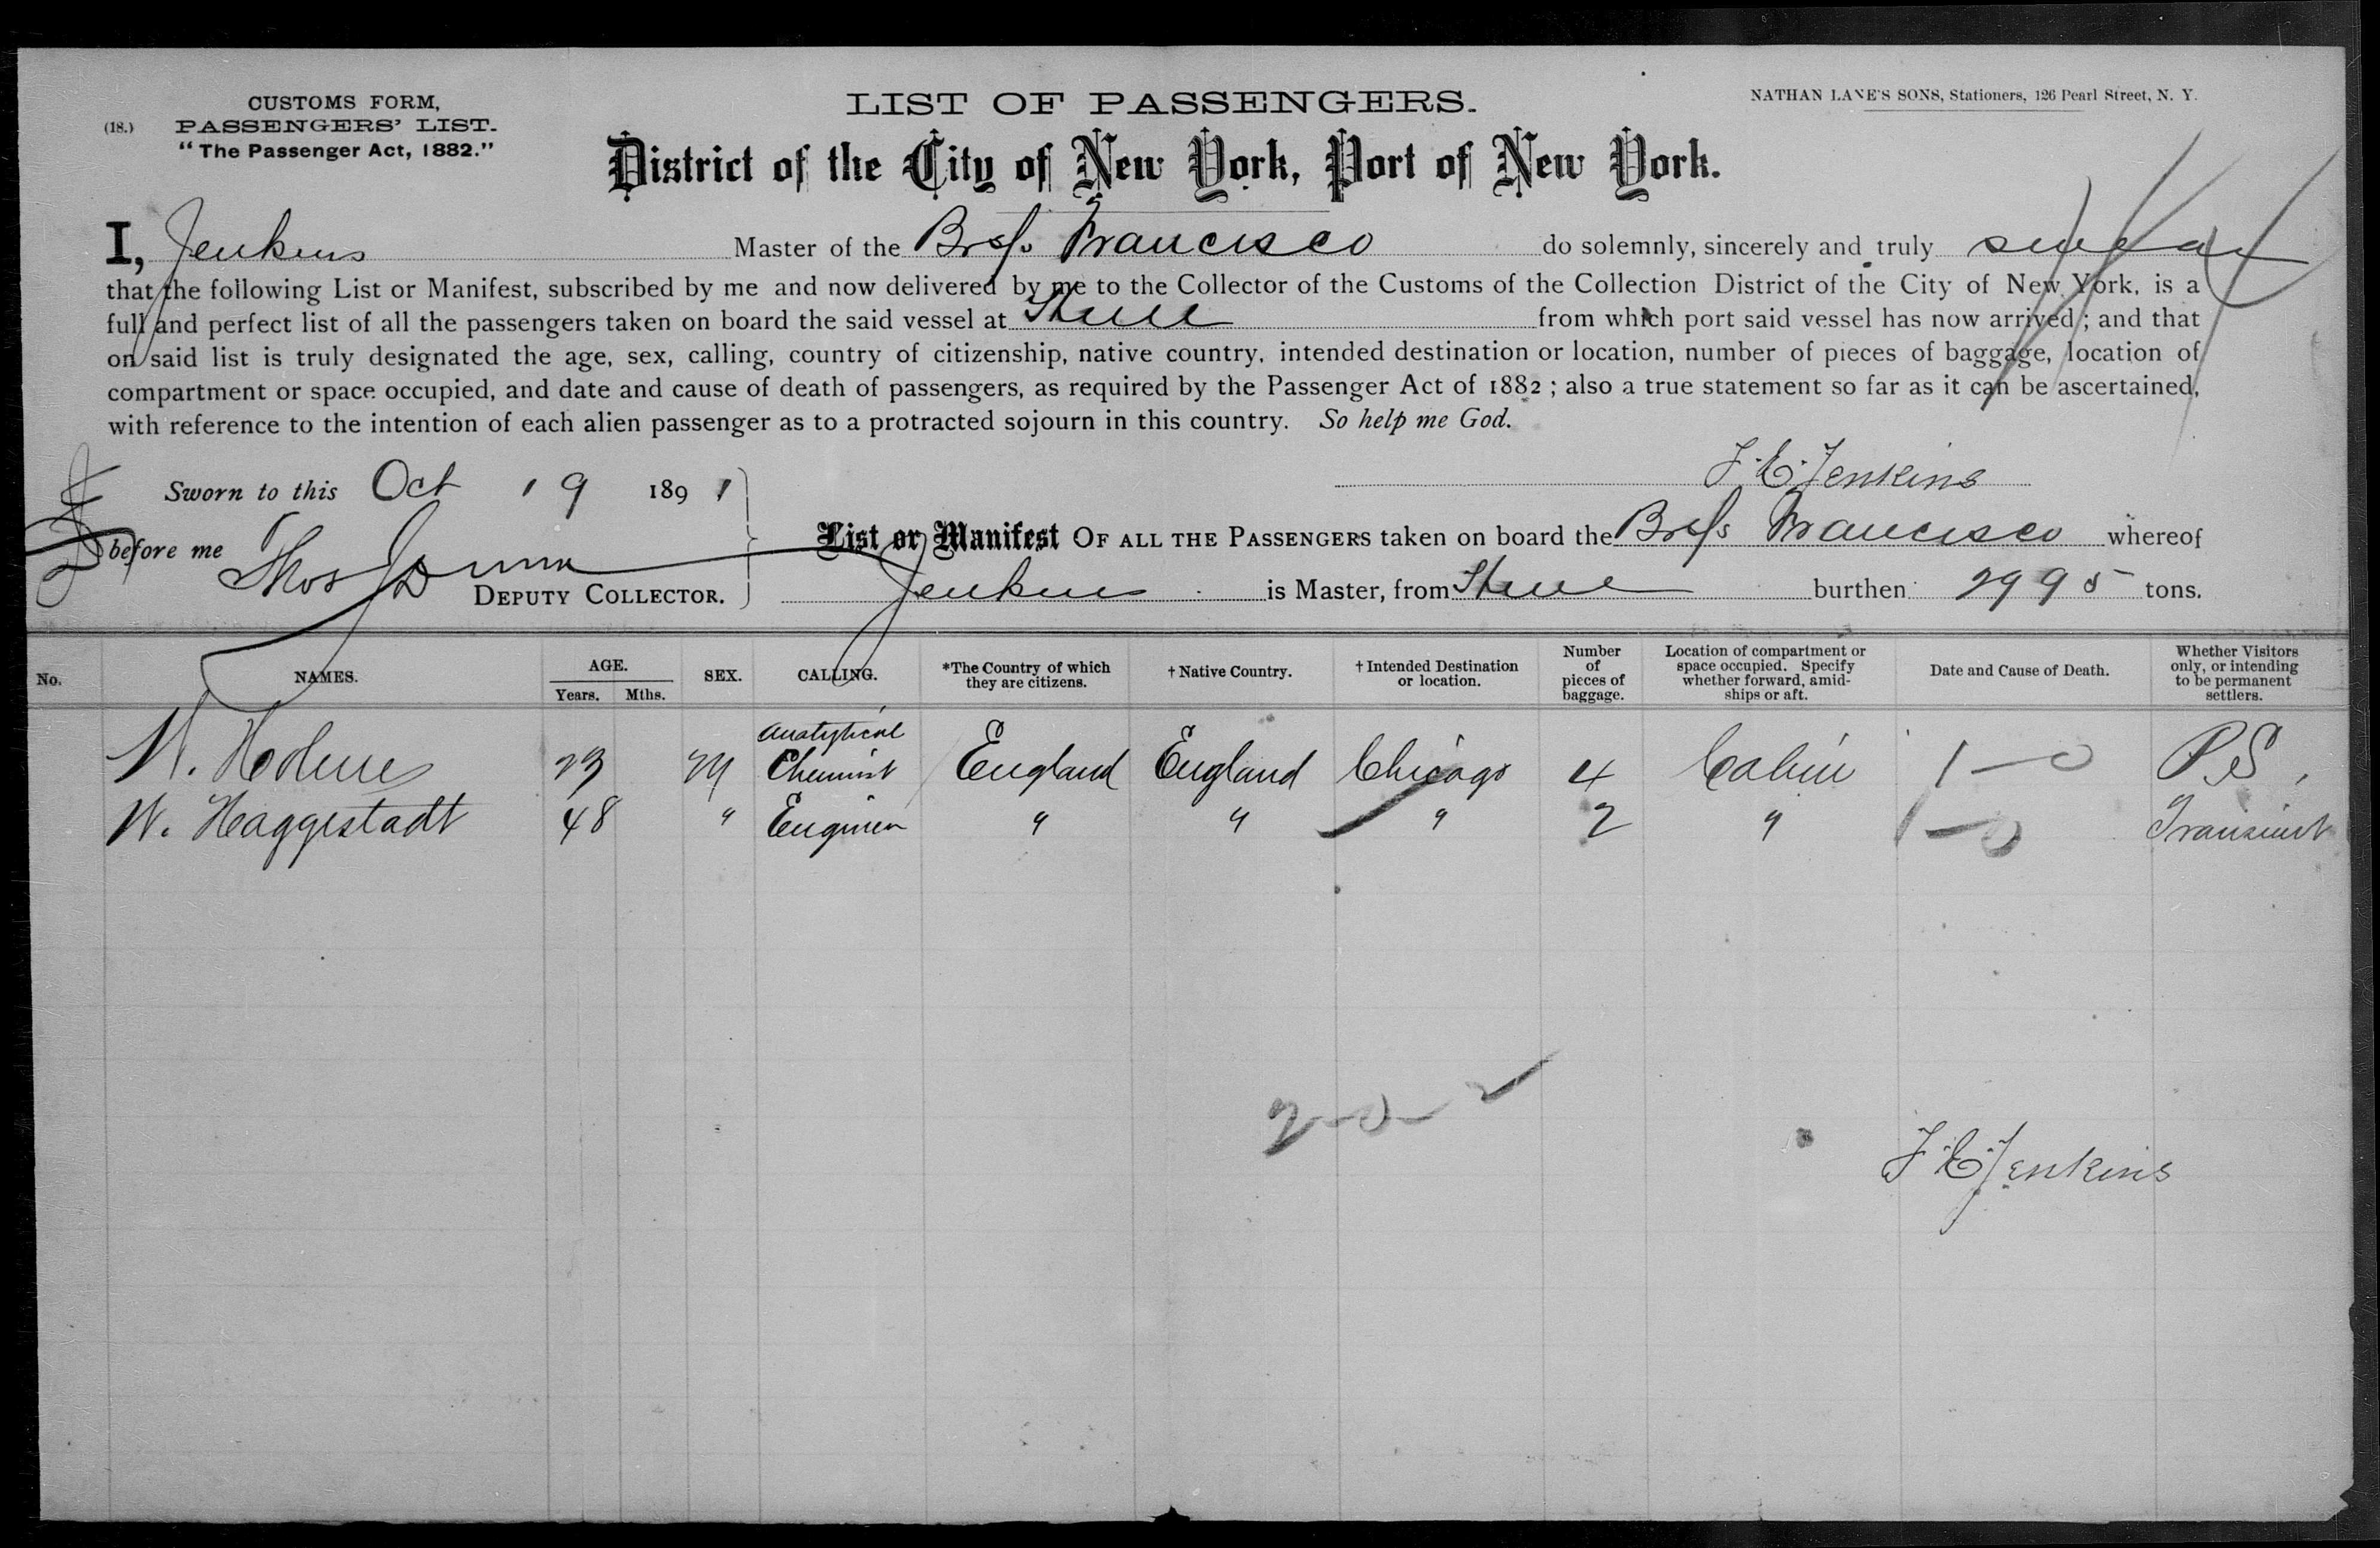 CUSTOMS FORM,
(18.) PASSENGERS' LIST.
"The Passenger Act, 1882."
LIST OF PASSENGERS.
NATHAN LANE'S SONS, Stationers, 126 Pearl Street, N. Y.
District of the City of New York, Port of New York.
I, Jenkins Master of the Br S/s Francisco do solemnly, sincerely and truly swear
that the following List or Manifest, subscribed by me and now delivered by me to the Collector of the Customs of the Collection District of the City of New York, is a
full and perfect list of all the passengers taken on board the said vessel at from which port said vessel has now arrived; and that
on said list is truly designated the age, sex, calling, country of citizenship, native country, intended destination or location, number of pieces of baggage, location of
compartment or space occupied, and date and cause of death of passengers, as required by the Passenger Act of 1882; also a true statement so far as it can be ascertained,
with reference to the intention of each alien passenger as to a protracted sojourn in this country. So help me God.
F. E. Jenkins
Sworn to this Oct 19 1891
before me Thos J Dunn
DEPUTY COLLECTOR.
List or Manifest OF ALL THE PASSENGERS taken on board the Br S/s Francisco whereof
Jenkins is Master, from burthen 2995 tons.
No. NAMES. AGE. Years. Mths. SEX. CALLING. *The Country of which they are citizens. † Native Country. † Intended Destination or location. Number of pieces of baggage. Location of compartment or space occupied. Specify whether forward, amidships or aft. Date and Cause of Death. Whether Visitors only, or intending to be permanent settlers.
23 M Analytical Chemist England England Chicago 4 Cabin 1-0 P.S.
W. Haggestadt 48 " Engineer " " " 2 " 1-0 Transient
2-0-
F E Jenkins